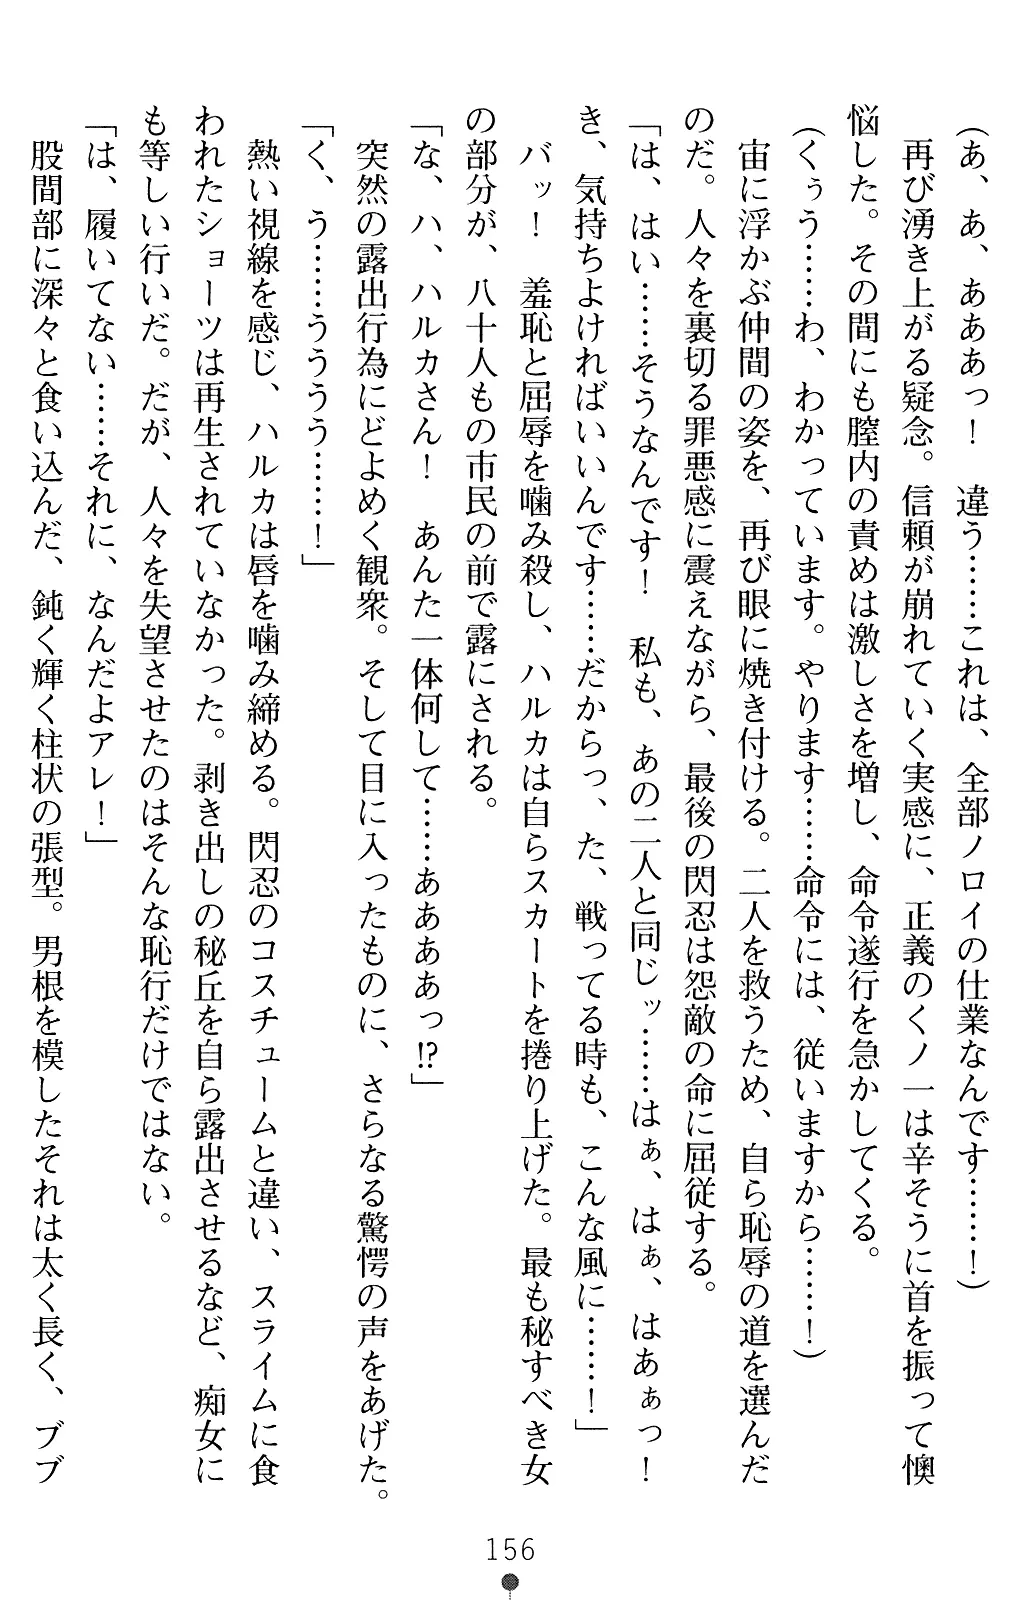 (あ、あ、あああっ！　違う……これは、全部ノロイの仕業なんです……！)
　再び湧き上がる疑念。信頼が崩れていく実感に、正義のくノ一は辛そうに首を振って懊
悩した。その間にも膣内の責めは激しさを増し、命令遂行を急かしてくる。
(くぅう……わ、わかっています。やります……命令には、従いますから……！)
　宙に浮かぶ仲間の姿を、再び眼に焼き付ける。二人を救うため、自ら恥辱の道を選んだ
のだ。人々を裏切る罪悪感に震えながら、最後の閃忍は怨敵の命に屈従する。
「は、はい……そうなんです！　私も、あの二人と同じッ……はぁ、はぁ、はあぁっ！
き、気持ちよければいいんです……だからっ、た、戦ってる時も、こんな風に……！」
　バッ！　羞恥と屈辱を噛み殺し、ハルカは自らスカートを捲り上げた。最も秘すべき女
の部分が、八十人もの市民の前で露にされる。
「な、ハ、ハルカさん！　あんた一体何して……ああああっ!?」
　突然の露出行為にどよめく観衆。そして目に入ったものに、さらなる驚愕の声をあげた。
「く、う……うううう……！」
　熱い視線を感じ、ハルカは唇を噛み締める。閃忍のコスチュームと違い、スライムに食
われたショーツは再生されていなかった。剥き出しの秘丘を自ら露出させるなど、痴女に
も等しい行いだ。だが、人々を失望させたのはそんな恥行だけではない。
「は、履いてない……それに、なんだよアレ！」
　股間部に深々と食い込んだ、鈍く輝く柱状の張型。男根を模したそれは太く長く、ブブ
156